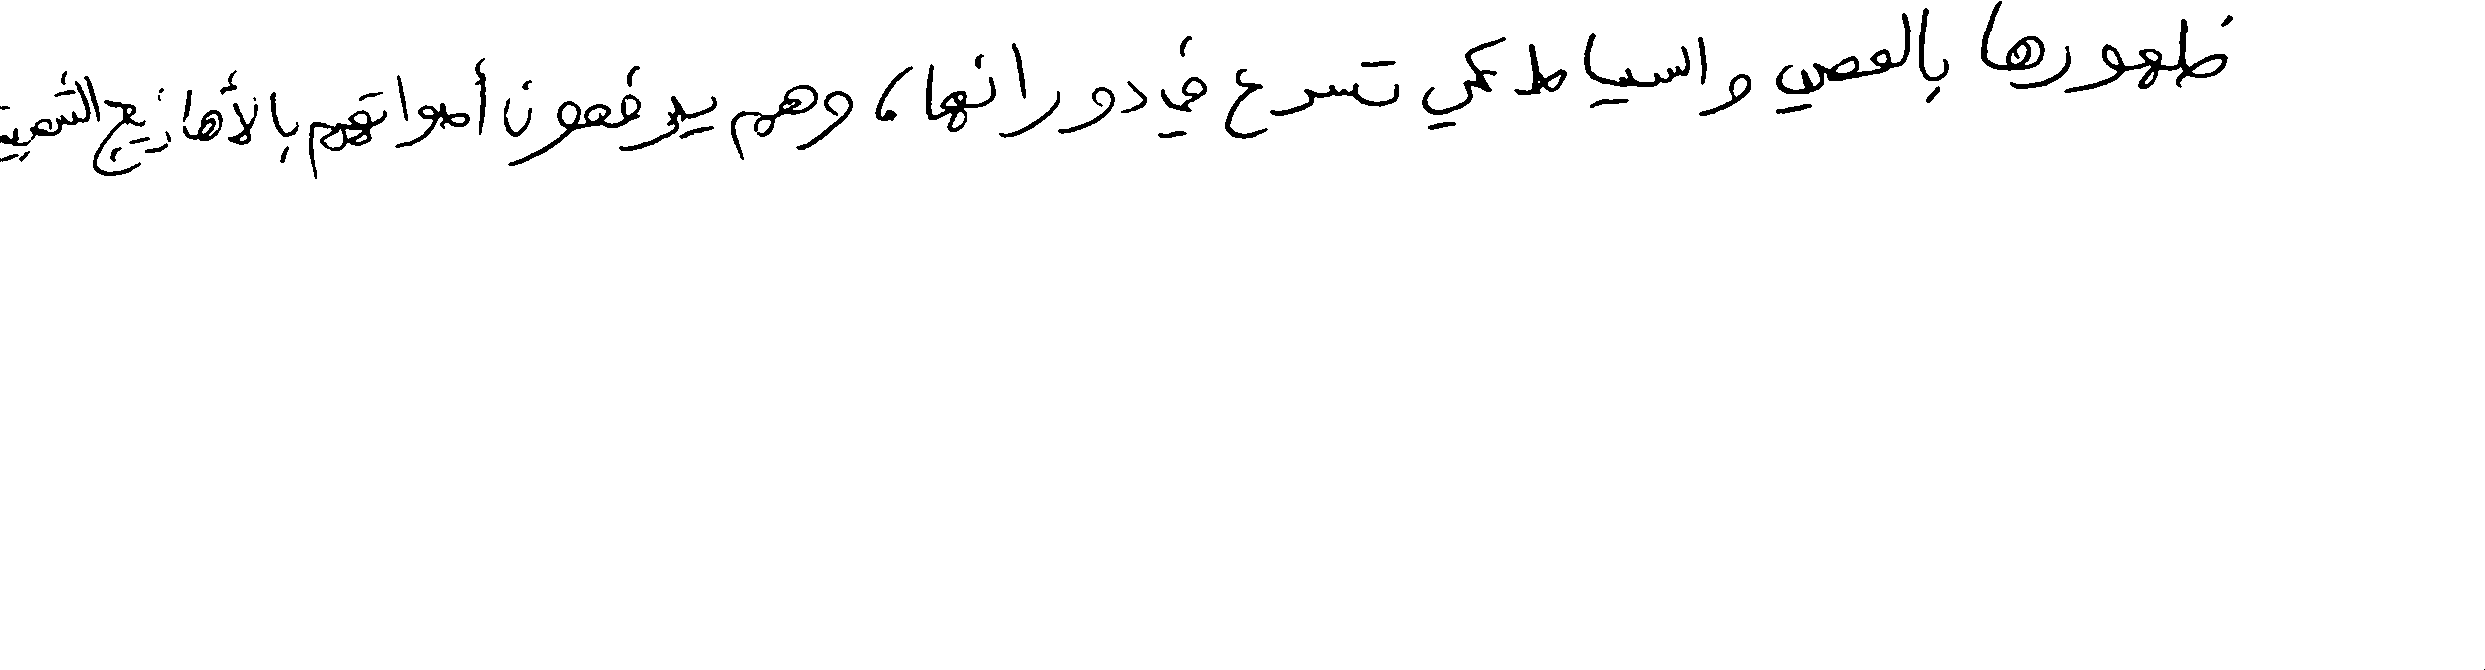 ظهورها بالعصي والسياط كي تسرع في دورانها، وهم يرفعون أصواتهم بالأهازيج الشعبية